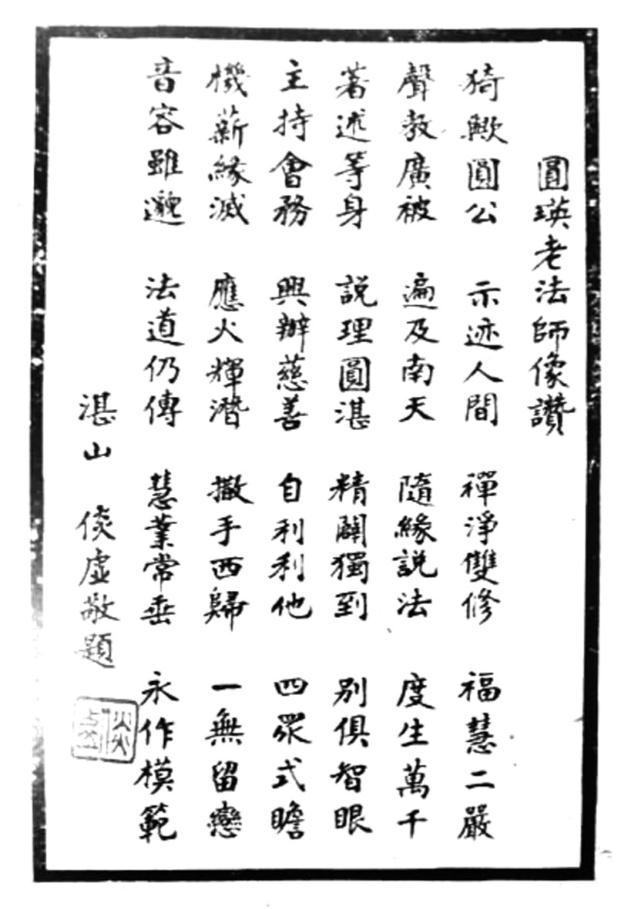 圓瑛老法師像讚
猗歟圓公 示迹人間 禪淨雙修 福慧二嚴
聲教廣被 遍及南天 隨緣說法 度生萬千
著述等身 說理圓湛 精闢獨到 別俱智眼
主持會務 興辦慈善 自利利他 四眾式瞻
機薪緣滅 應火輝潛 撒手西歸 一無留戀
音容雖邈 法道仍傳 慧業常垂 永作模範
湛山 倓虛敬題